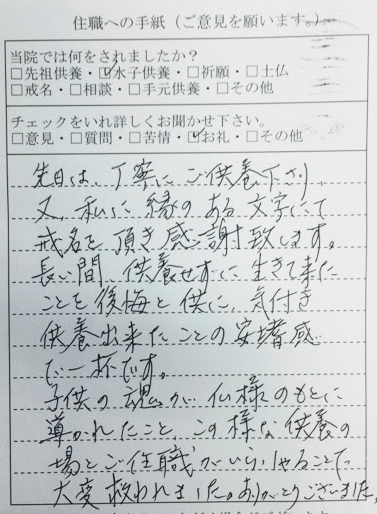 住職への手紙（ご意見を願います。）
当院では何をされましたか？
□先祖供養・☑水子供養・□祈願・□土仏
□戒名・□相談・□手元供養・□その他
チェックをいれ詳しくお聞かせ下さい。
□意見・□質問・□苦情・☑お礼・□その他
先日は、丁寧にご供養下さり、
又、私に縁のある文字にて
戒名を頂き感謝致します。
長い間、供養せずに生きて来た
ことを後悔と供に、気付き
供養出来たことの安堵感
で一杯です。
子供の魂が仏様のもとに
導かれたこと、この様な供養の
場とご住職がいらっしゃることで
大変救われました。ありがとうございました。